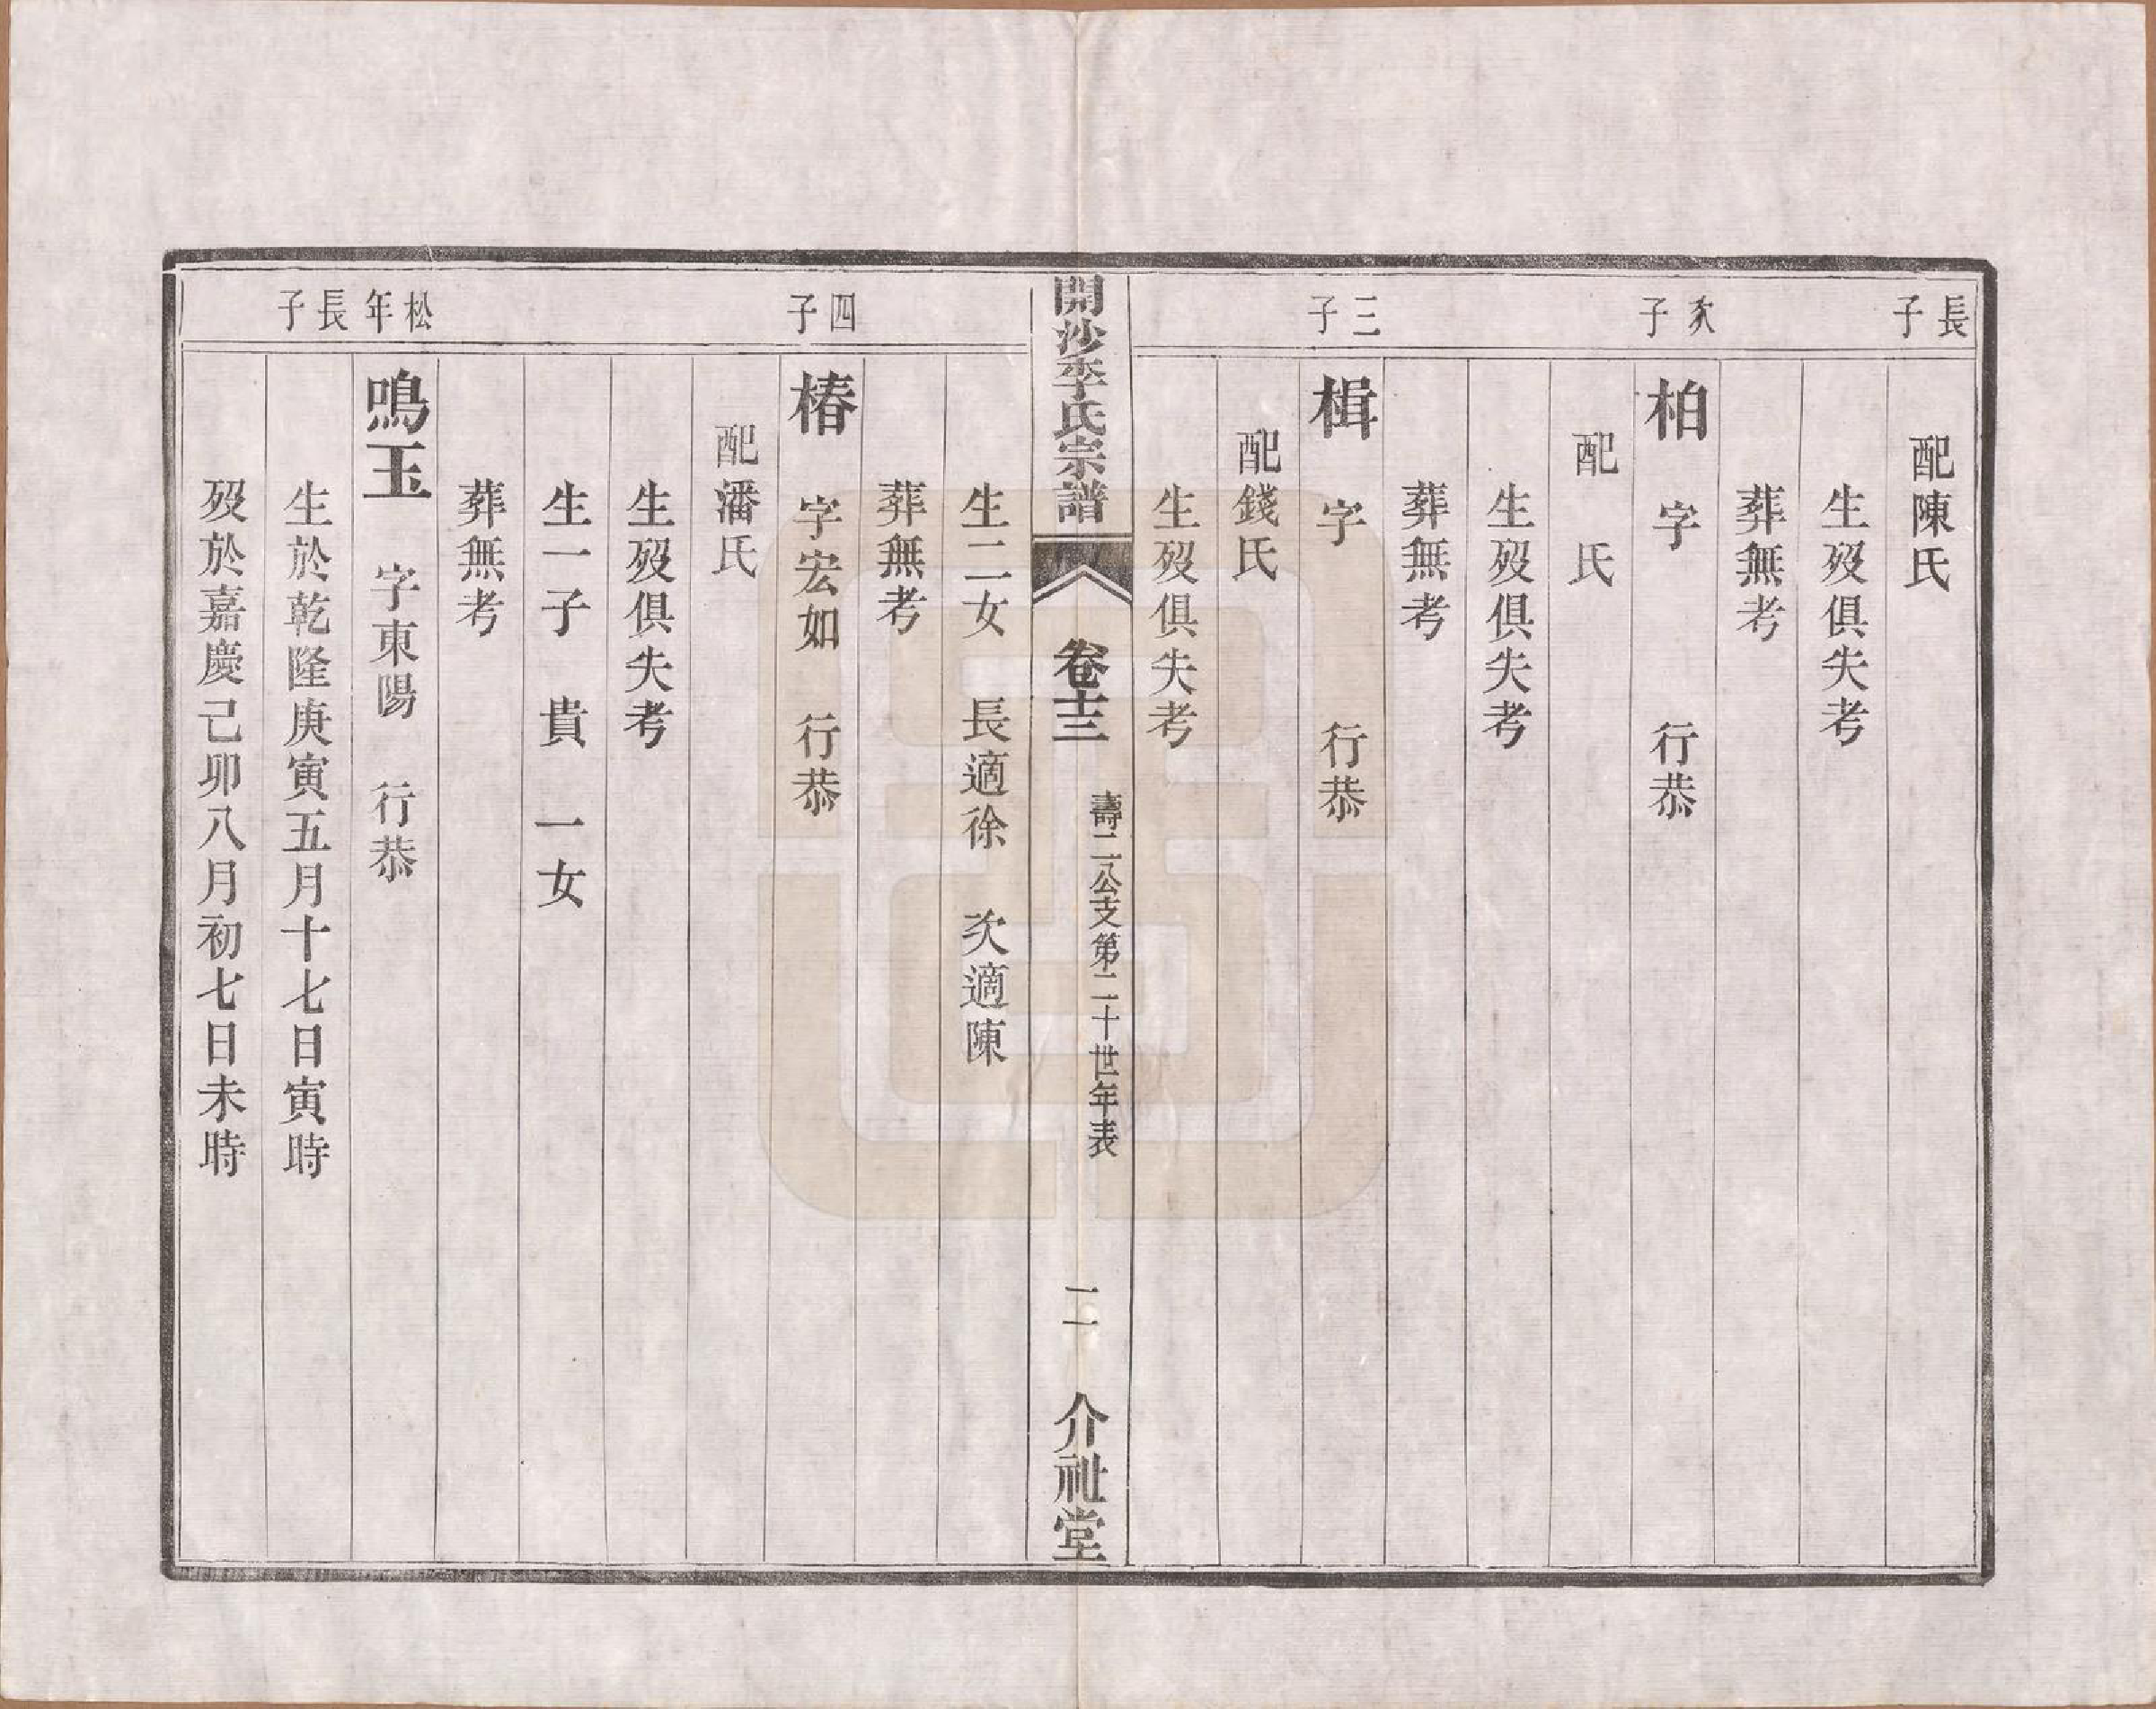 長子
配陳氏
生歿俱失考
葬無考
次子
柏 字 行恭
配 氏
生歿俱失考
葬無考
三子
楫 字 行恭
配錢氏
生歿俱失考
開沙李氏宗譜
卷十三
壽二公支第二十世年表
二
介祉堂
生二女 長適徐 次適陳
葬無考
四子
椿 字宏如 行恭
配潘氏
生歿俱失考
生一子 貴 一女
葬無考
松年長子
鳴玉 字東陽 行恭
生於乾隆庚寅五月十七日寅時
歿於嘉慶己卯八月初七日未時